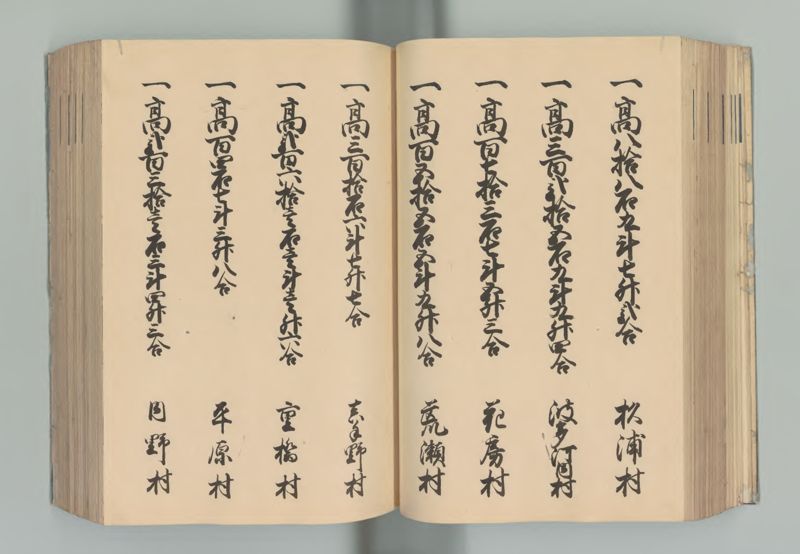 一高八拾八石九斗七升弐合 松浦村
一高三百弐拾五石九斗九升四合 波多河内村
一高百七拾三石七斗五升三合 花房村
一高百五拾五石五斗九升八合 荒瀬村
一高三百拾石六斗七升七合 野村
一高弐百六拾壱石壱斗壱升六合 重橋村
一高百四石七斗三升八合 平原村
一高弐百三拾壱石三斗四升三合 岡野村